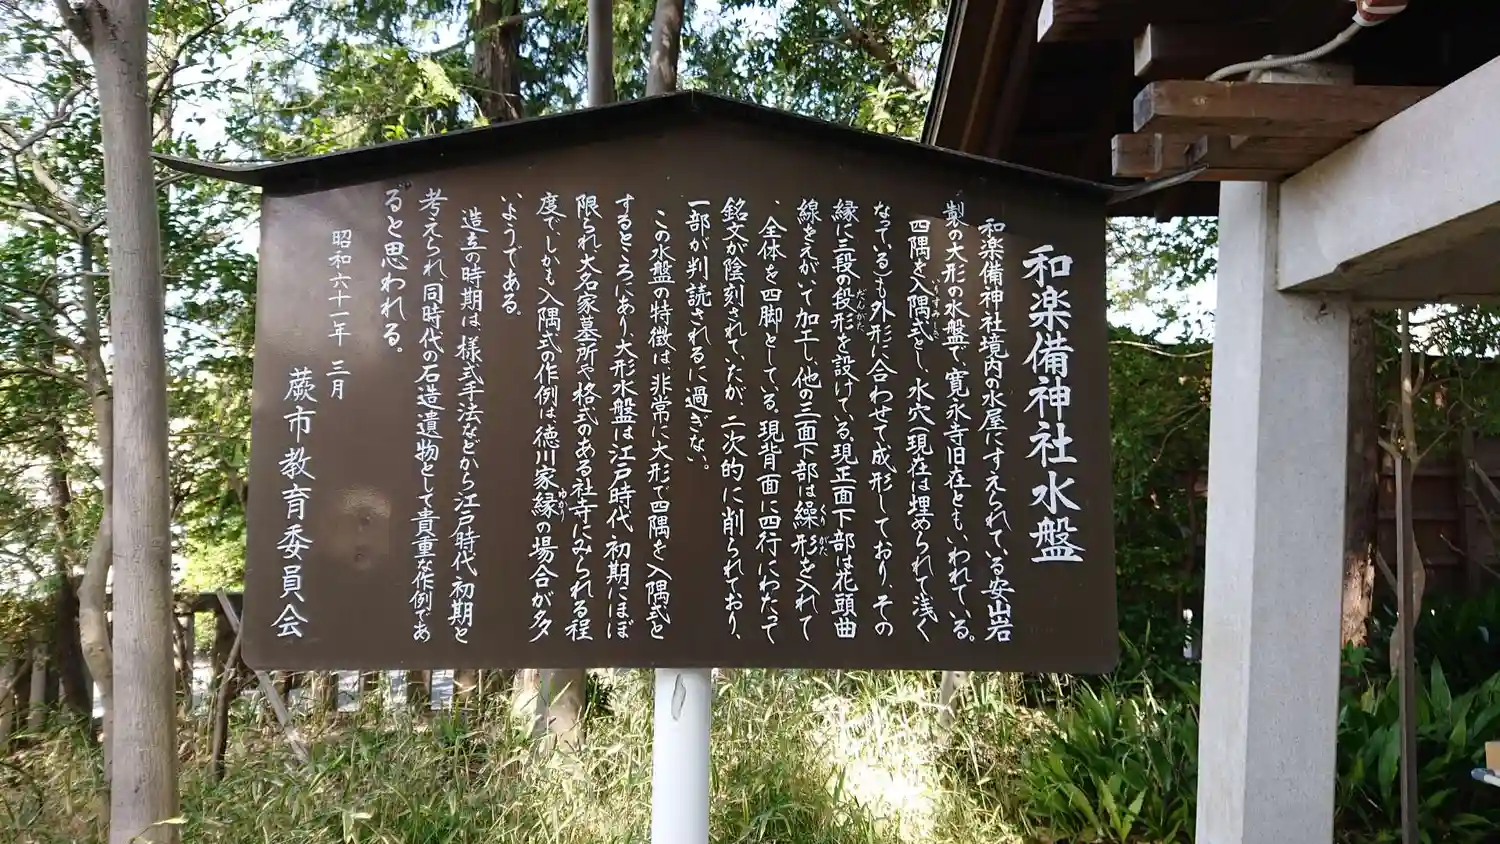 和楽備神社水盤
和楽備神社境内の水屋にすえられている安山岩
製の大形の水盤で、寛永寺旧在ともいわれている。
四隅を入隅式とし、水穴(現在は埋められて浅く
いりすみしき
なっている)も外形に合わせて成形しており、その
縁に三段の段形を設けている。現正面下部は花頭曲
だんがた
線をえがいて加工し、他の三面下部は繰形を入れて
くりがた
、全体を四脚としている。現背面に四行にわたって
銘文が陰刻されていたが、二次的に削られており、
一部が判読されるに過ぎない。
この水盤の特徴は、非常に大形で四隅を入隅式と
するところにあり、大形水盤は江戸時代初期にほぼ
限られ大名家墓所や格式のある社寺にみられる程
度で、しかも入隅式の作例は徳川家縁の場合が多
ゆかり
いようである。
造立の時期は、様式手法などから江戸時代初期と
考えられ、同時代の石造遺物として貴重な作例であ
ると思われる。
昭和六十一年 三月
蕨市教育委員会